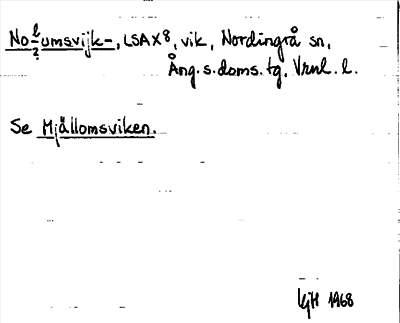 No l/2 umsvijk-, LSA X 8, vik, Nordingrå sn,
Ång. s. doms. tg. Vrnl. l.
Se Mjällomsviken.
KjH 1968